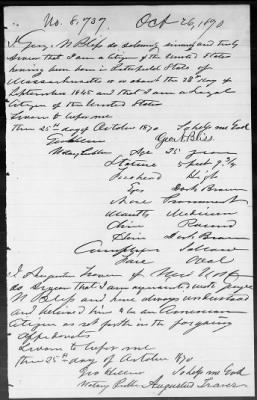 No. 8,737 Oct 26, 1870
I Geo. N Bliss do solemnly, sincerely and truly
swear that I am a citizen of the United States
having been born in Pittsfield State of
Massachusetts on or about the 28th day of
September 1845 and that I am a loyal
Citizen of the United States
Sworn to before me
this 25th day of October 1870 So help me God
Geo. N Bliss
Notary Public Age 25 years
Stature 5 feet 9 3/4
Forehead High
Eyes Dark Brown
Nose Prominent
Mouth Medium
Chin Round
Hair Dark Brown
Complexion Sallow
Face Oval
I Augustus of New York
do swear that I am acquainted with George
N Bliss and have always understood
and believed him to be an American
Citizen as set forth in the foregoing
affidavit
Sworn to before me
this 25th day of October 1870
Geo So help me God
Notary Public Augustus